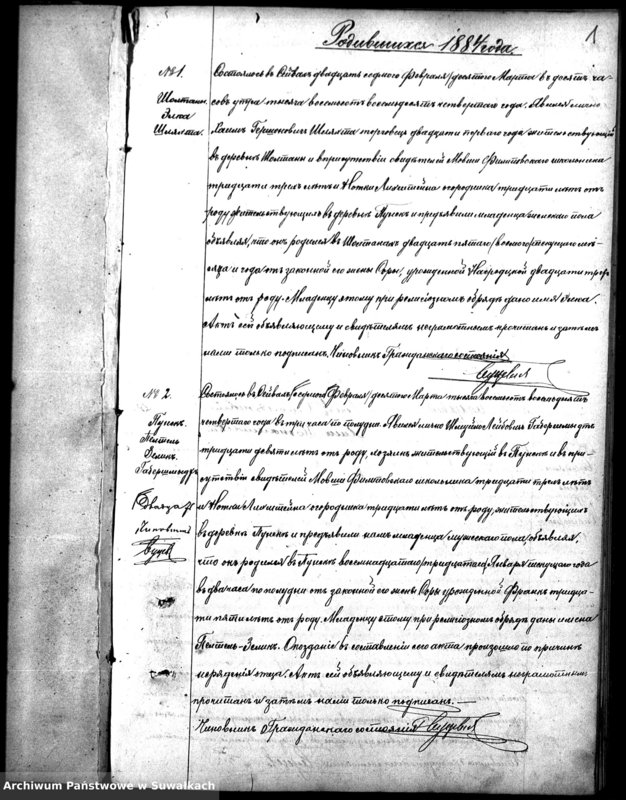 Родившихся 1884 года
1
№ 1.
Шолтаны
Элка
Шляхта.
Состоялось въ Сейвахъ двадцать седьмого Февраля/десятого Марта въ десять ча-
совъ утра тысяча восемьсотъ восемьдесятъ четвертаго года. Явился лично
Гершоновичъ Шляхта торговецъ двадцати перваго года жительствующій
въ деревнѣ Шолтаны и въ присутствіи свидѣтелей Мовши Филиповскаго школьника
тридцати трехъ лѣтъ и огородника тридцати лѣтъ отъ
роду жительствующихъ въ деревнѣ Пунскъ и предъявилъ младенца женскаго пола
объявляя, что онъ родился въ Шолтанахъ двадцать пятаго/восьмого/текущаго мѣ-
сяца и года отъ законной его жены Соры, урожденной двадцати трехъ
лѣтъ отъ роду. Младенцу этому при религіозномъ обрядѣ дано имя Элка.
Актъ сей объявляющему и свидѣтелямъ неграмотнымъ прочитанъ и затѣмъ
нами только подписанъ. Чиновникъ Гражданскаго состоянія
№ 2.
Пунскъ.
Пейтель
Зеликъ
Состоялось въ Сейвахъ Февраля/десятого Марта тысяча восемьсотъ восемьдесятъ
четвертаго года въ три часа по полудни. Явился лично Лейбовичъ
тридцати девяти лѣтъ отъ роду, жительствующій въ Пунскѣ и въ при-
сутствіи свидѣтелей Мовши Филиповскаго школьника тридцати трехъ лѣтъ
и огородника тридцати лѣтъ отъ роду, жительствующихъ
въ деревнѣ Пунскъ и предъявилъ намъ младенца мужескаго пола объявляя,
что онъ родился въ Пунскѣ восемнадцатаго/тридцатаго/Января текущаго года
въ два часа по полудни отъ законной его жены Соры урожденной Франкъ тридца-
ти пяти лѣтъ отъ роду. Младенцу этому при религіозномъ обрядѣ даны имена
Пейтель-Зеликъ. Опозданіе въ составленіи сего акта произошло по причинѣ
отца. Актъ сей объявляющему и свидѣтелямъ неграмотнымъ
прочитанъ и затѣмъ нами только подписанъ.
Чиновникъ Гражданскаго состоянія
Archiwum Państwowe w Suwałkach